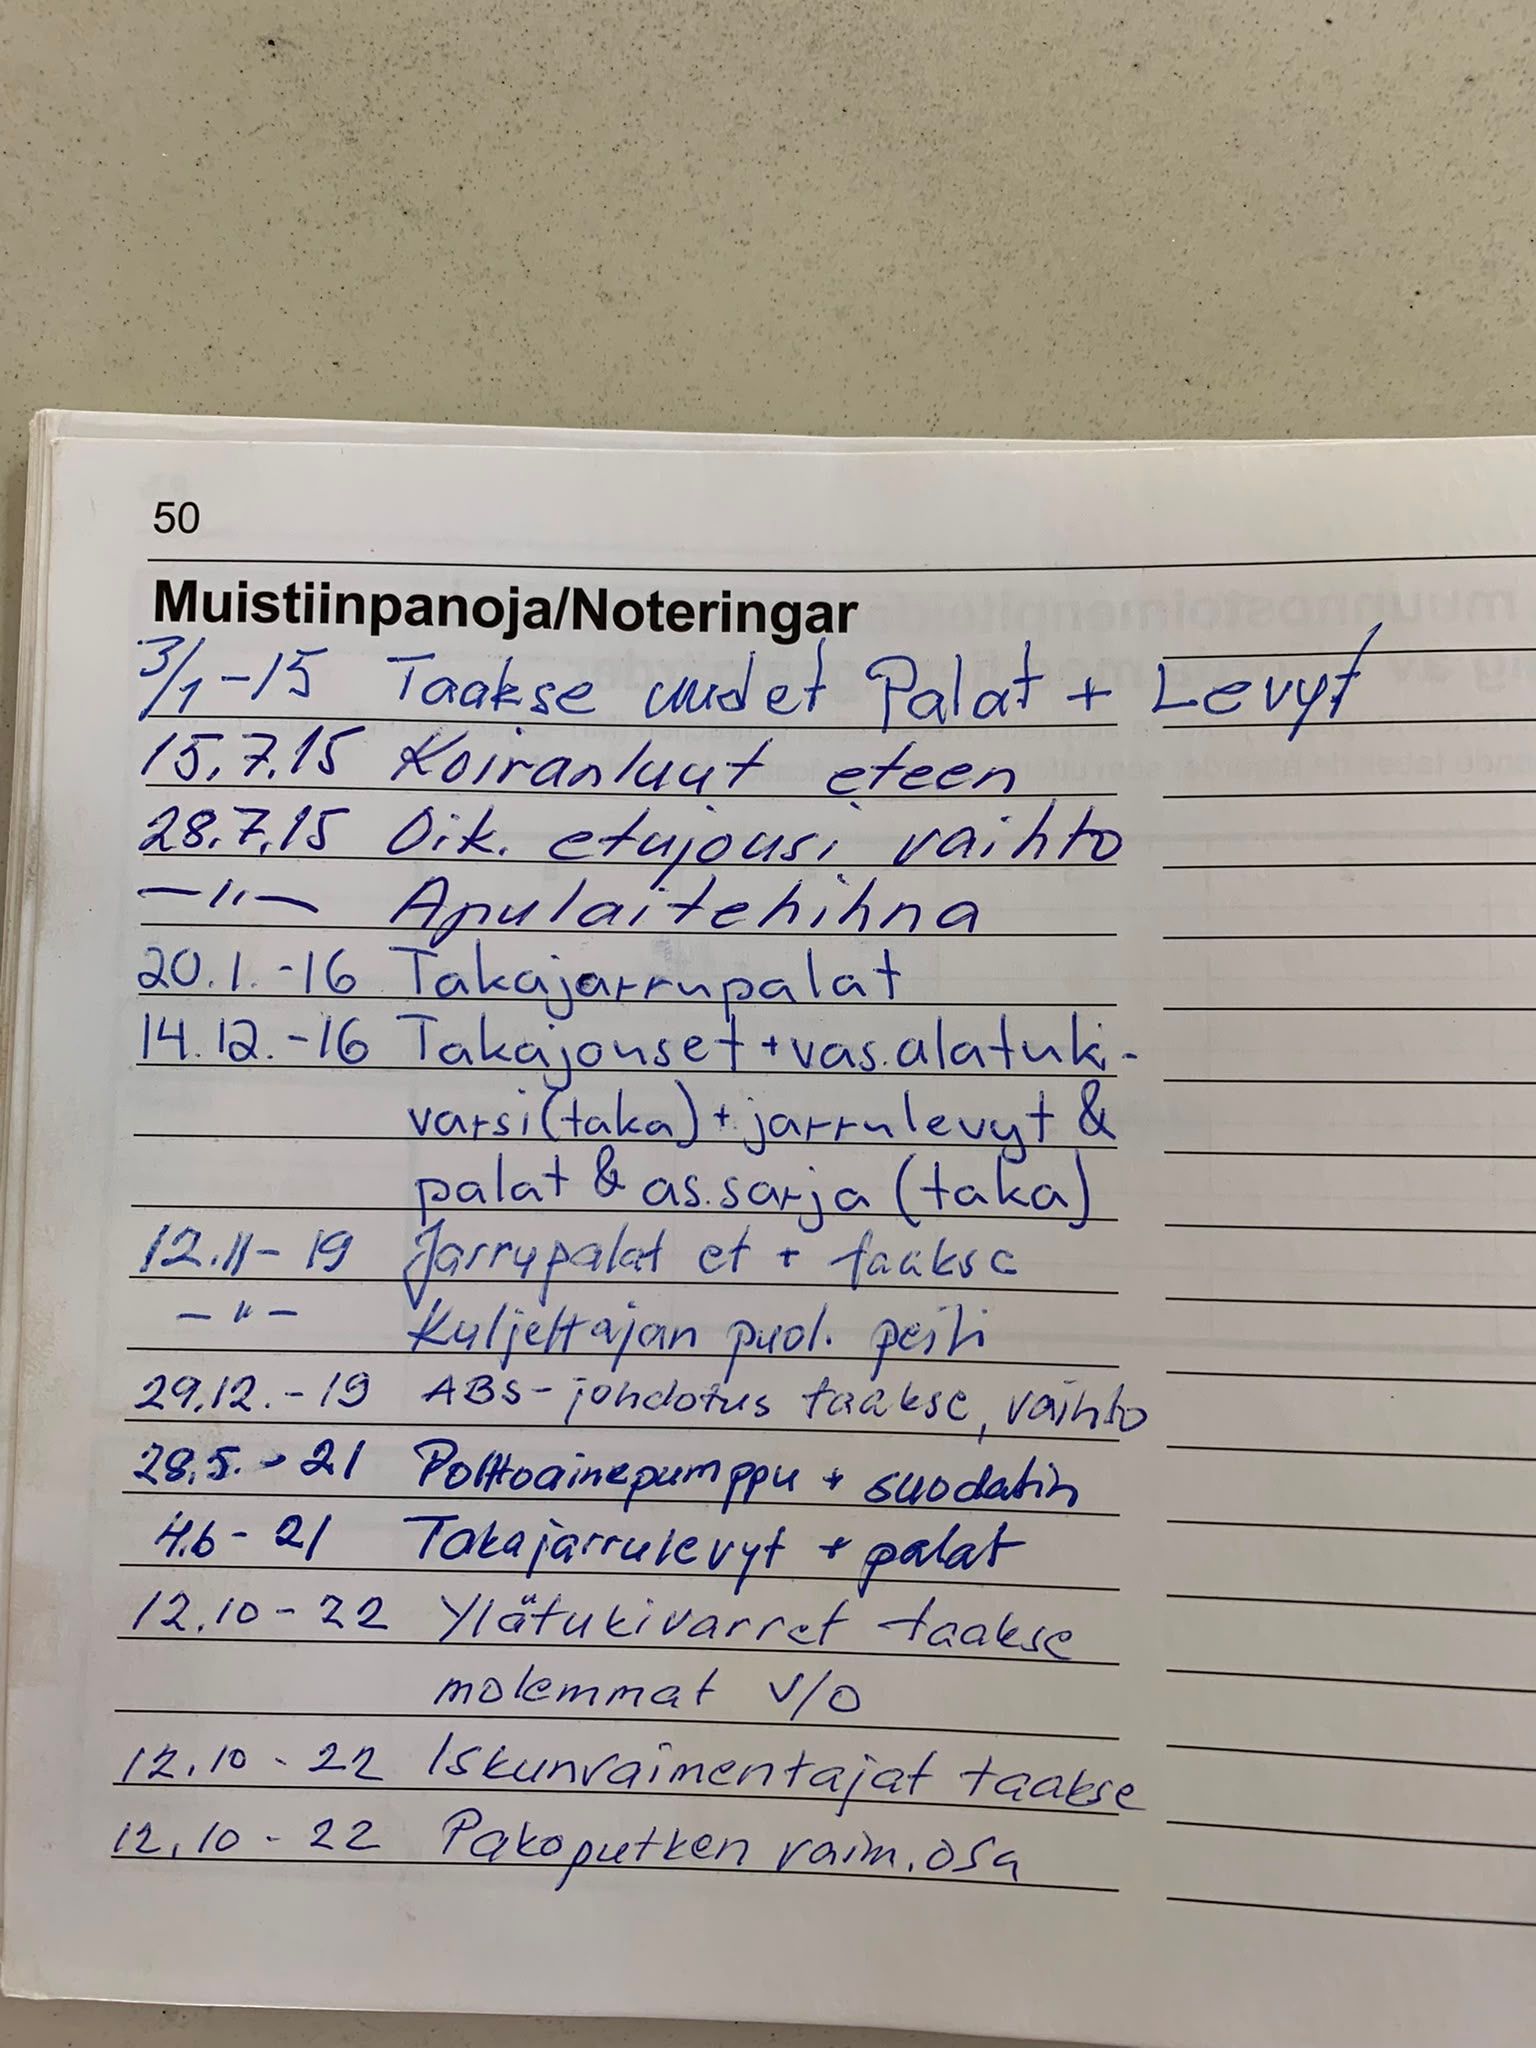 50
Muistiinpanoja/Noteringar
3/1-15 Taakse uudet Palat + Levyt
15.7.15 Koiranluut eteen
28.7.15 Oik. etujousi vaihto
—"— Apulaitehihna
20.1.-16 Takajarrupalat
14.12.-16 Takajouset + vas. alatuki-
varsi (taka) + jarrulevyt &
palat & as.sarja (taka)
12.11-19 Jarrupalat et + taakse
—"— Kuljettajan puol. peili
29.12.-19 ABS-johdotus taakse, vaihto
28.5.-21 Polttoainepumppu + suodatin
4.6-21 Takajarrulevyt + palat
12.10-22 Ylätukivarret taakse
molemmat v/o
12.10-22 Iskunvaimentajat taakse
12.10-22 Pakoputken vaim.osa